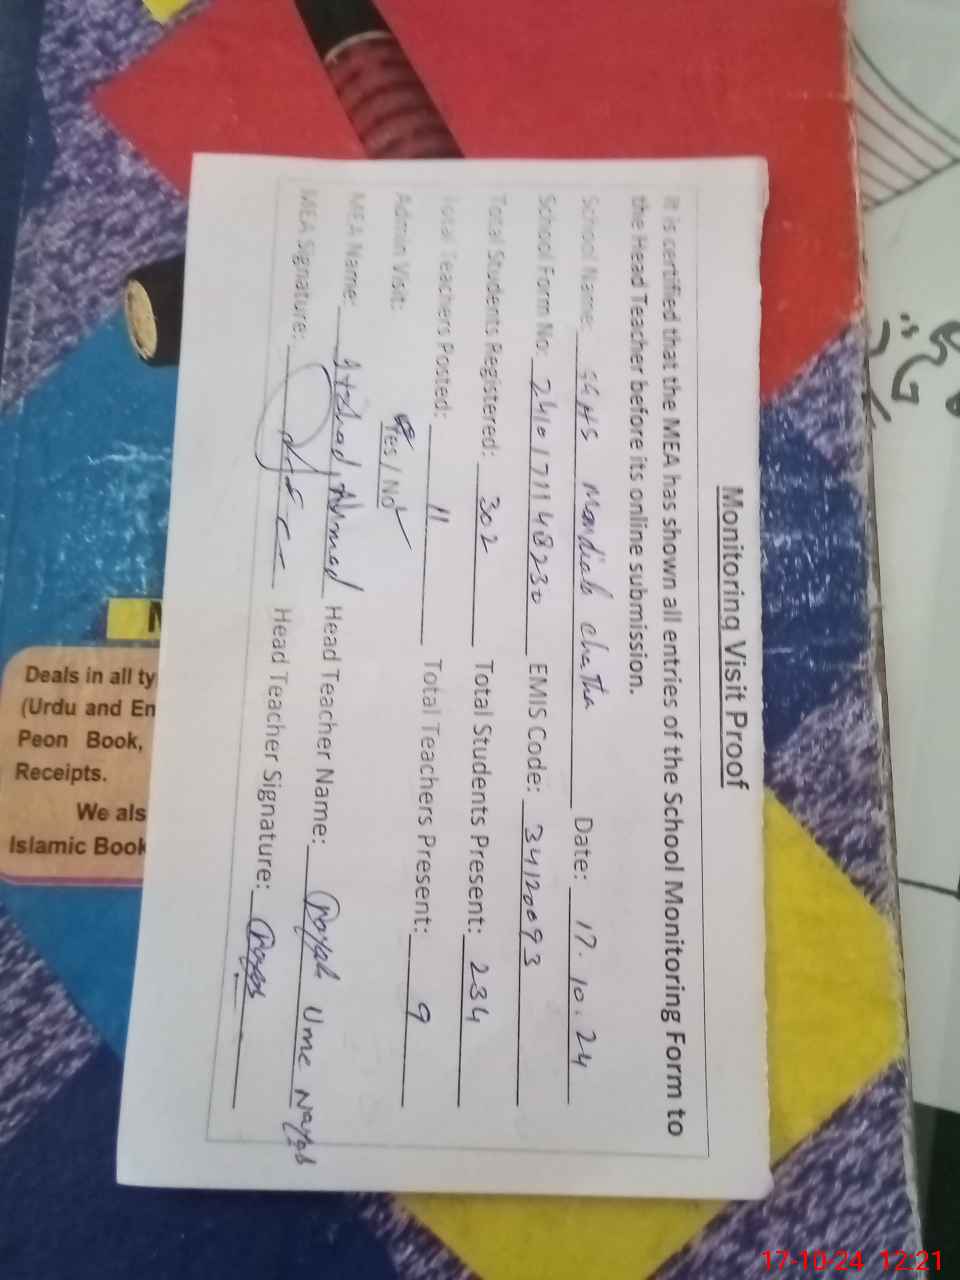 Monitoring Visit Proof
It is certified that the MEA has shown all entries of the School Monitoring Form to
the Head Teacher before its online submission.
School Name: GGHS Mandiala Chatha Date: 17.10.24
School Form No: 2410171148230 EMIS Code: 34120093
Total Students Registered: 302 Total Students Present: 234
Total Teachers Posted: 11 Total Teachers Present: 9
Admin Visit: Yes / No
MEA Name: Ahmad Head Teacher Name: Ume
MEA Signature: Head Teacher Signature:
Deals in all ty
(Urdu and En
Peon Book,
Receipts.
We als
Islamic Book
17-10-24 12:21